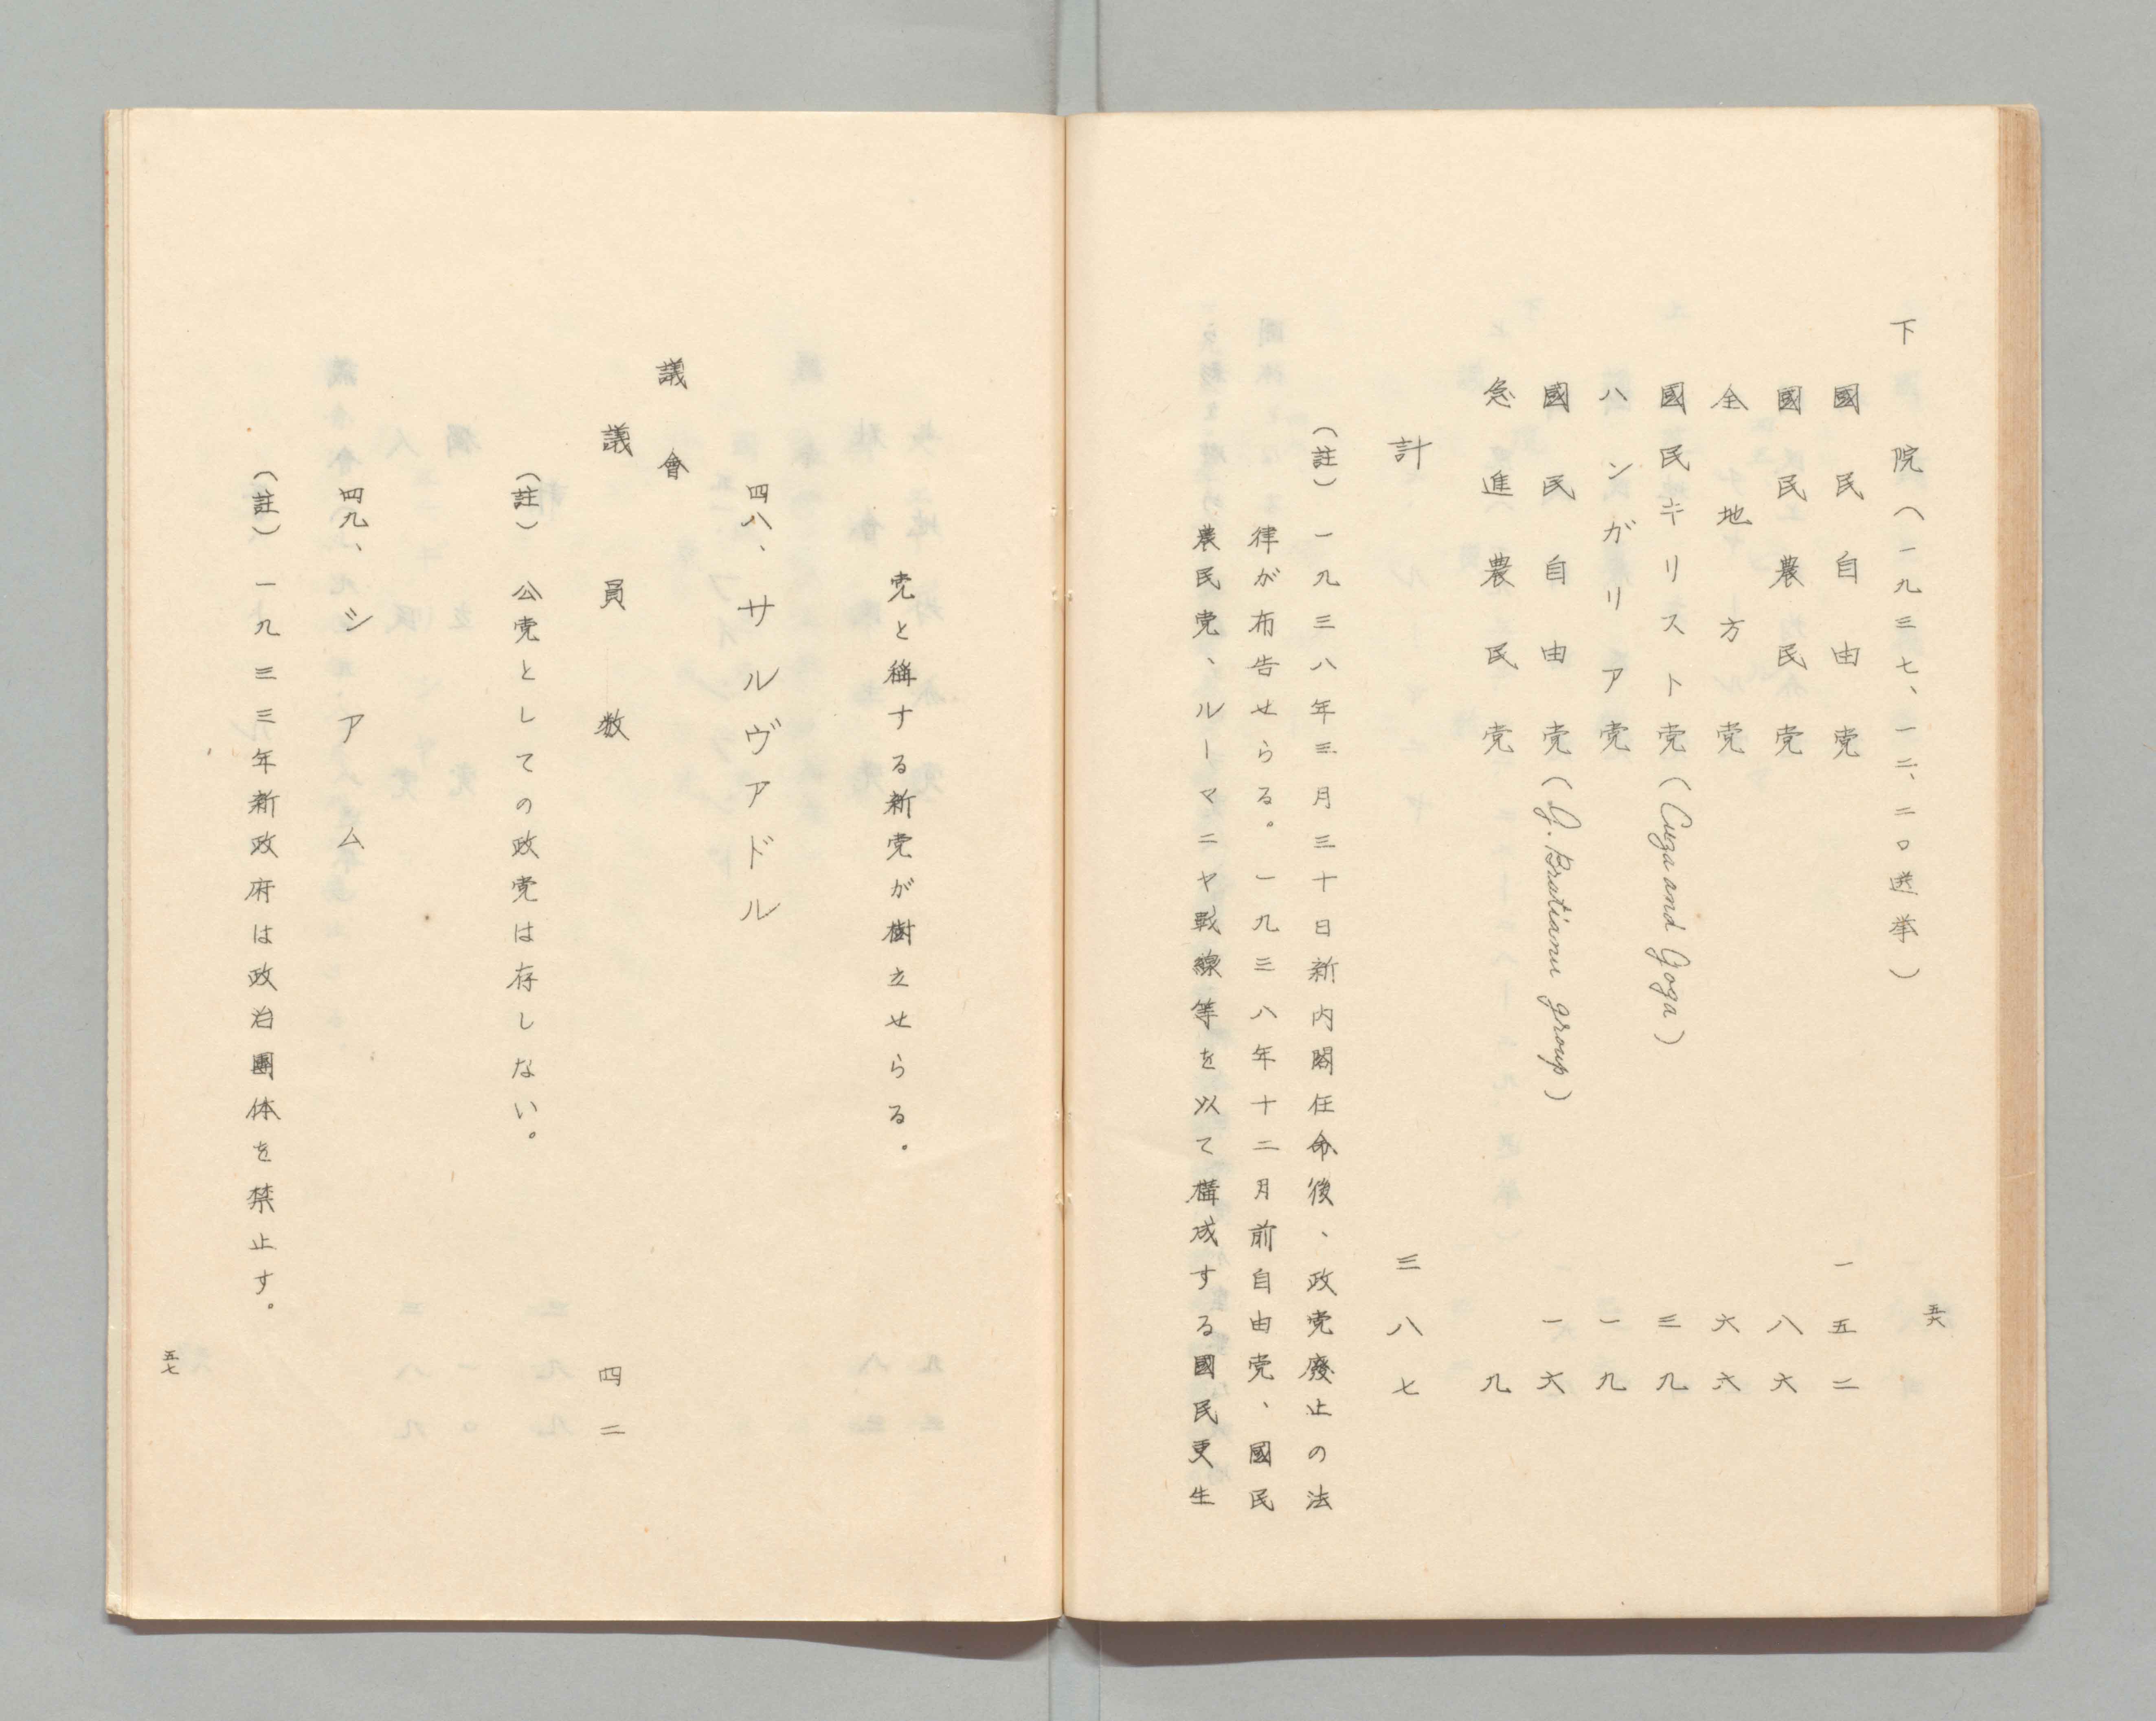 五六
下院（一九三七、一二、二〇選挙）
國民自由党 一五二
國民農民党 八六
全地方党 六六
國民キリスト党（Cuza and Goga） 三九
ハンガリア党 一九
國民自由党（G. Bratianu group） 一六
急進農民党 九
計 三八七
（註）一九三八年三月三十日新内閣任命後、政党廢止の法
律が布告せらる。一九三八年十二月前自由党、國民
農民党、ルーマニヤ戦線等を以て構成する國民更生
党と稱する新党が樹立せらる。
四八、サルヴアドル
議會
議員数 四二
（註）公党としての政党は存しない。
四九、シアム
（註）一九三三年新政府は政治團体を禁止す。
五七